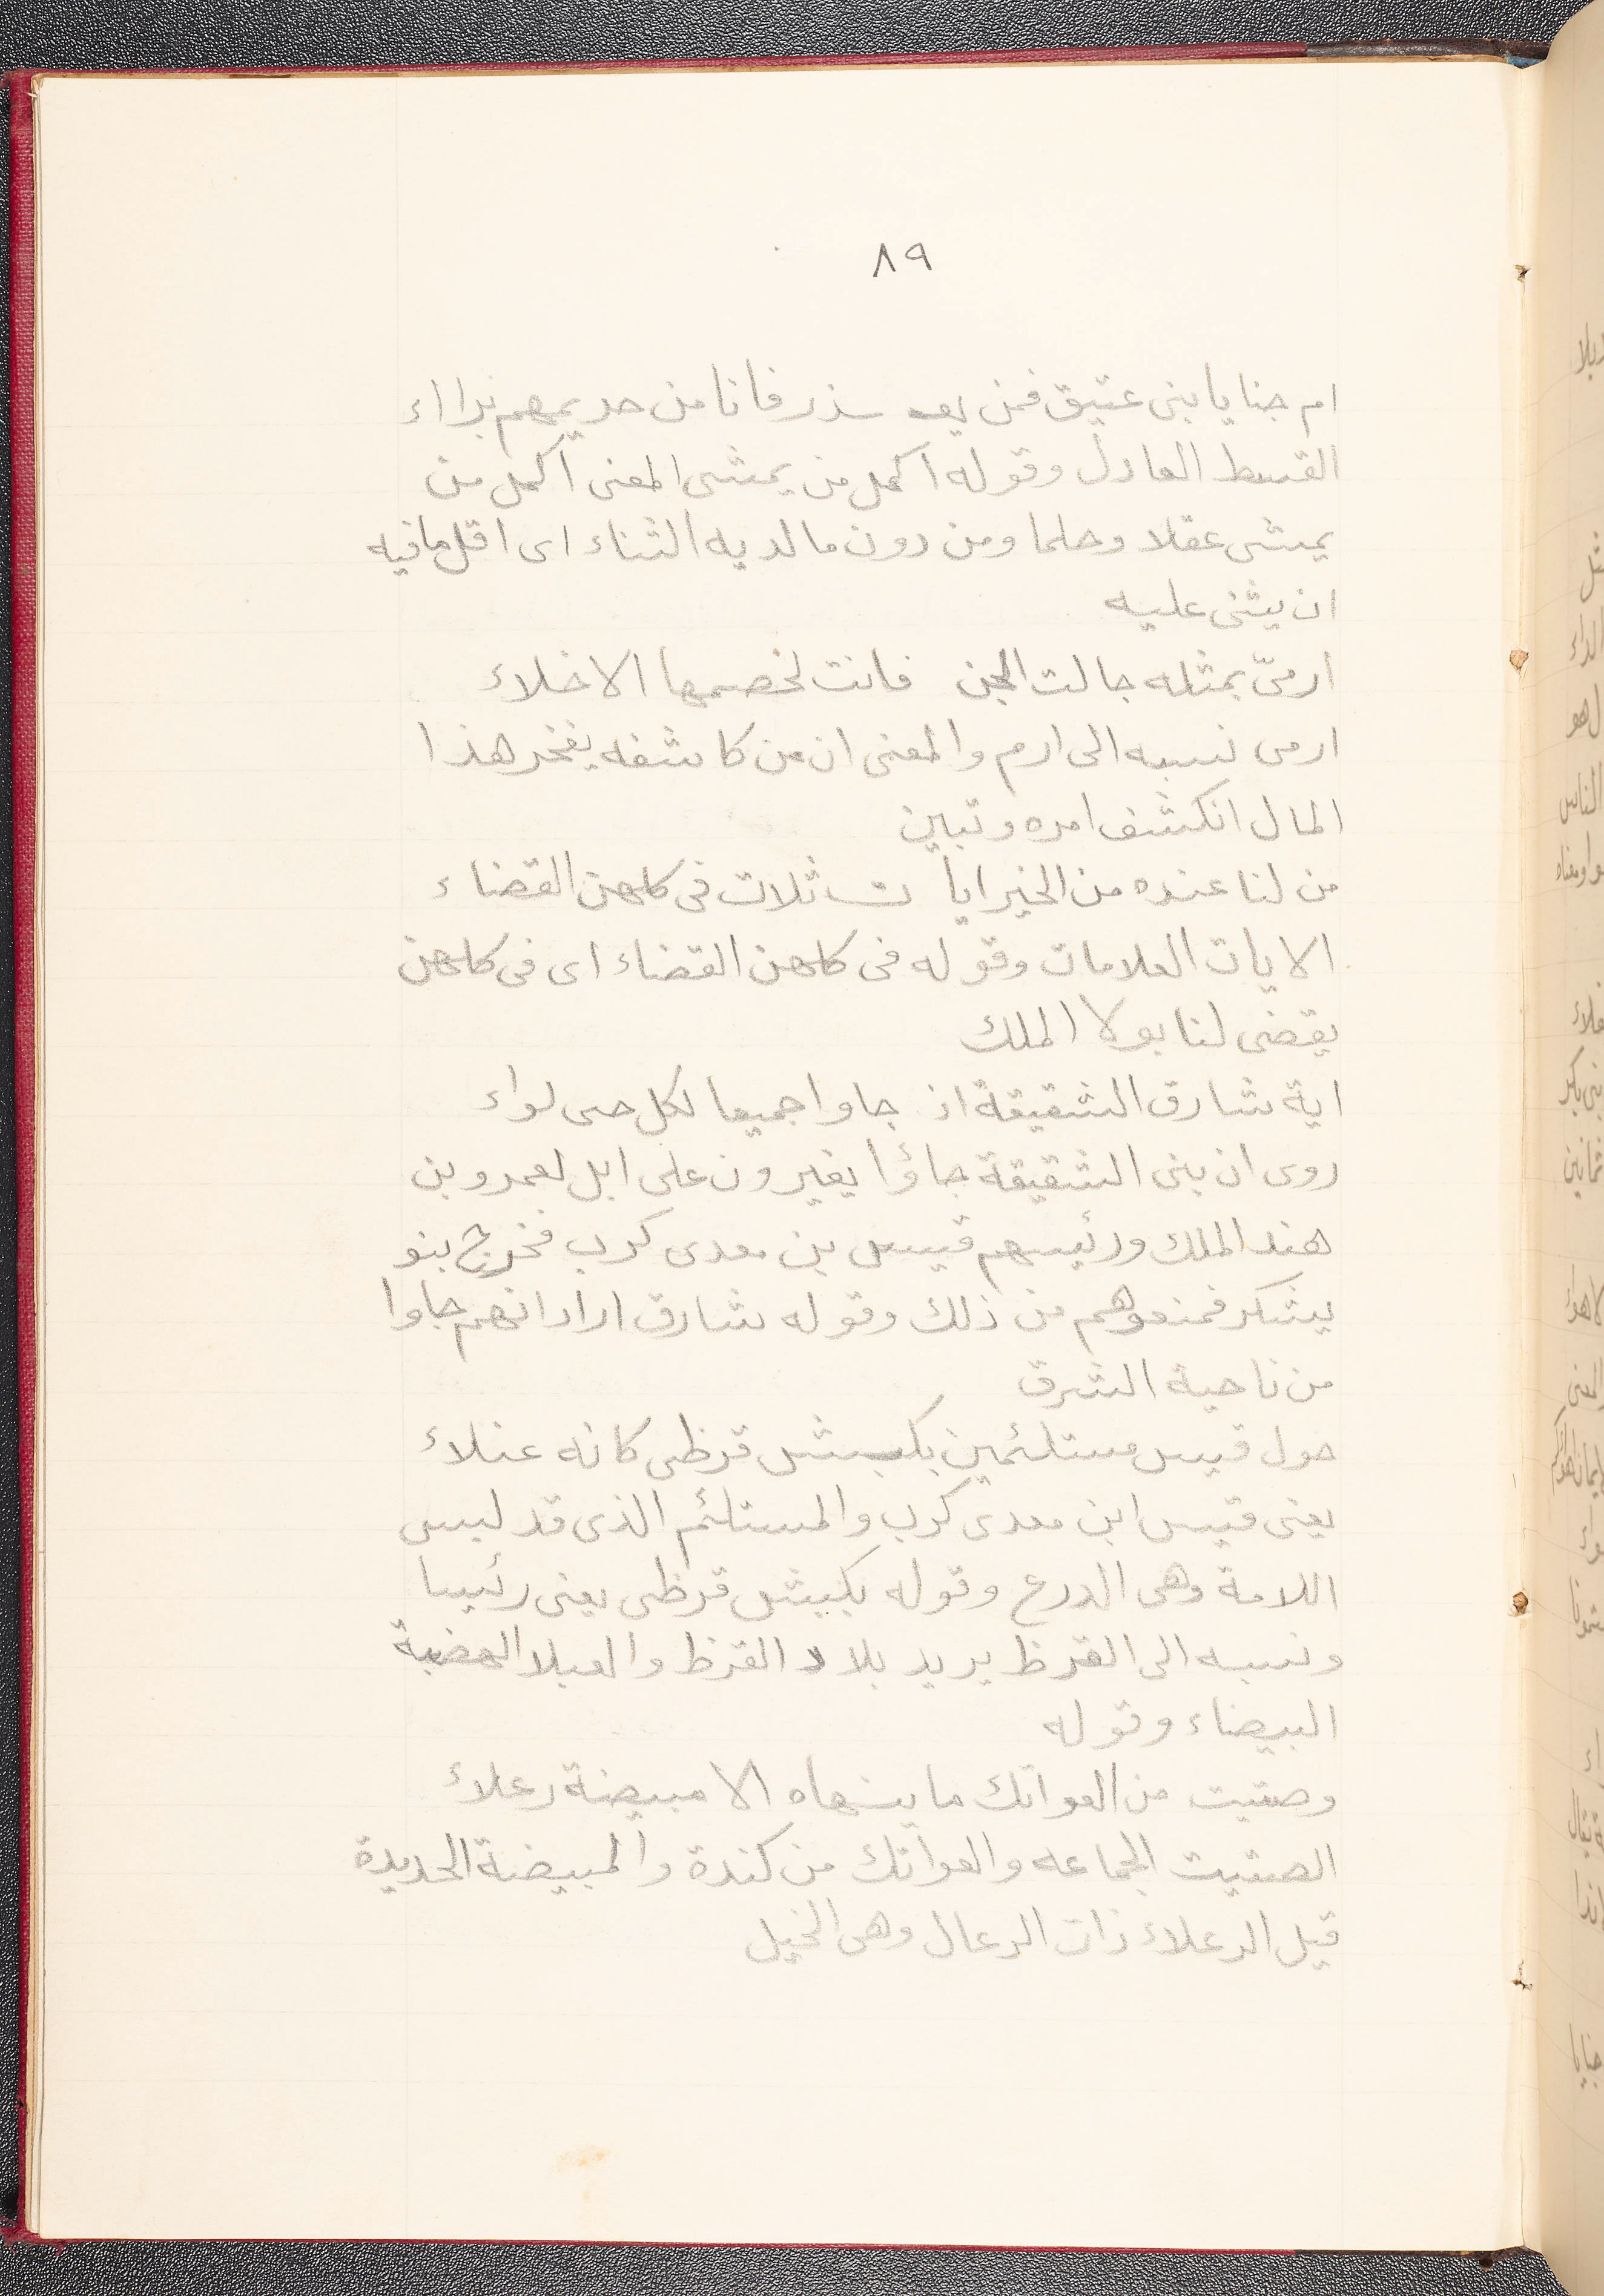 ٨٩
ام جنايا بنى عتيق فمن يعـ ـذر فانا من حربهم براء
القسط العادل وقوله اكمل من يمشى المعنى اكمل من
يمشى عقلا وحلما ومن دون ما لديه الثناء اى اقل ما فيه
ان يثنى عليه
ارمىّ بمثله جالت الجن فانت لخصمها الاخلاء
ارمى نسبه الى ارم والمعنى ان من كاشفه يفخر هذا
المال انكشف امره وتبين
من لنا عنده من الخير ايا ت ثلات فى كلهن القضاء
الايات العلامات وقوله فى كلهن القضاء اى فى كلهن
يقضى لنا بولا الملك
اية شارق الشقيقة اذ جاوا جميعا لكل حى لواء
روى ان بنى الشقيقة جاؤا يغيرون على ابل لعمرو بن
هند الملك ورئيسهم قيس بن معدى كرب فخرج بنو
يشكر فمنعوهم من ذلك وقوله شارق اراد انهم جاوا
من ناحية الشرق
حول قيس مستلئمين بكبش قرظى كانه عبلاء
يعنى قيس ابن معدى كرب والمستلئم الذى قد لبس
اللامة وهى الدرع وقوله بكبش قرظى يعنى رئيسا
ونسبه الى القرظ يريد بلاد القرظ والعبلا الهضبة
البيضاء وقوله
وصتيت من العواتك ما ينهاه الا مبيضة رعلاء
الصتيت الجماعه والعواتك من كندة والمبيضة الحديدة
قيل الرعلاء ذات الرعال وهى الخيل